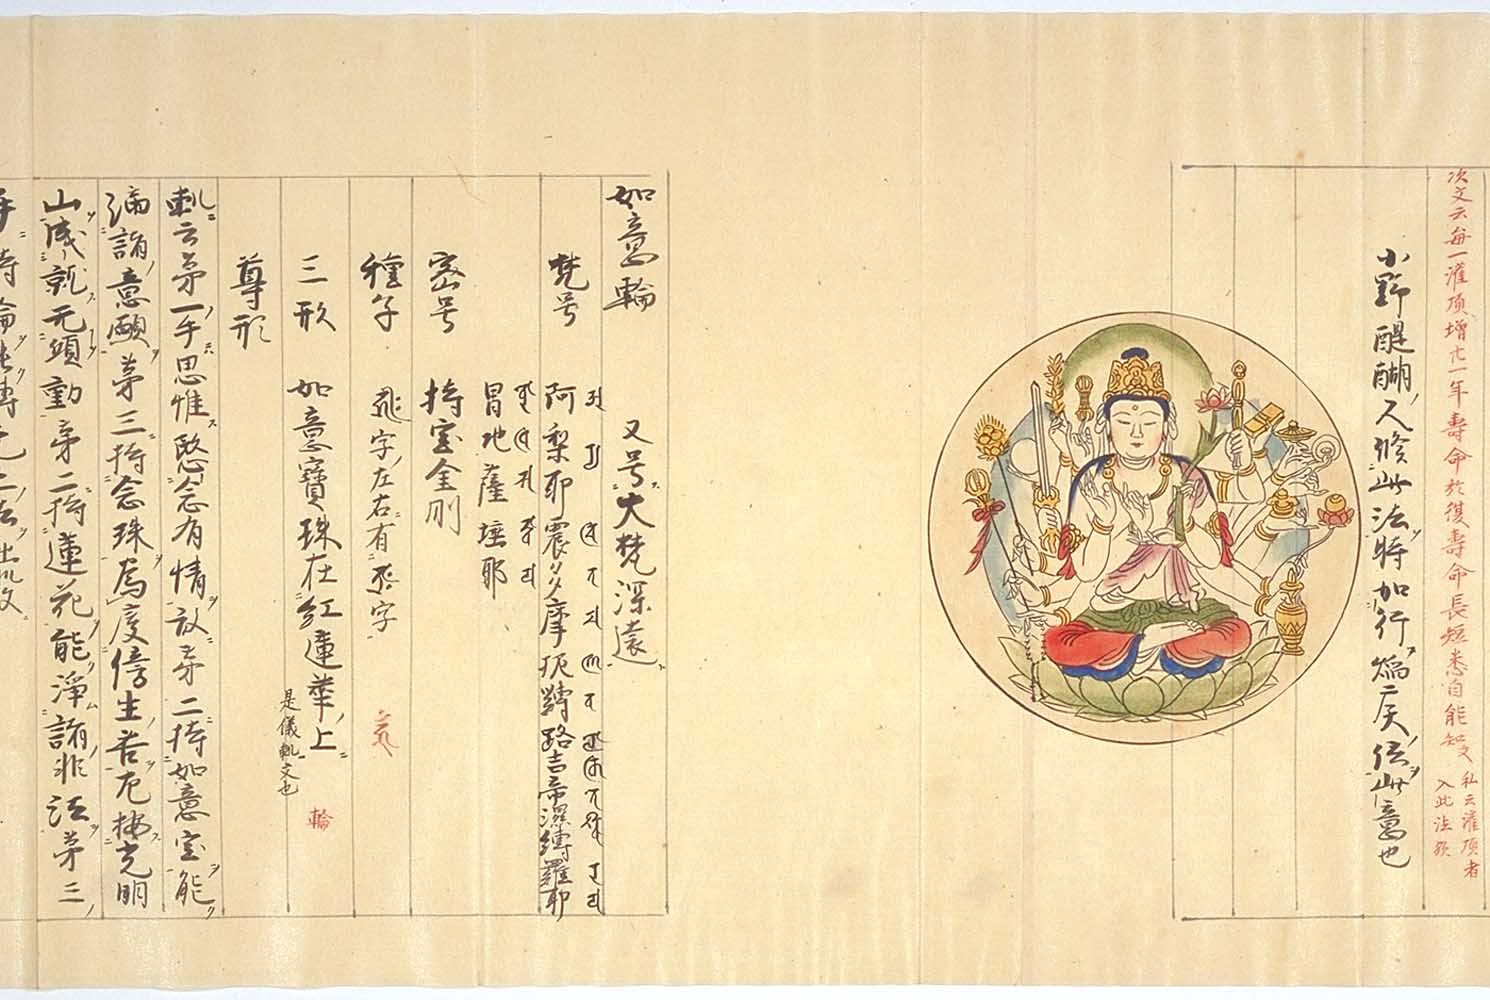 次文云每一灌頂增廿一年壽命於復壽命長短悉自能知文
私云灌頂者
入此法欤
小野醍醐ノ人修此法時加行焔二天ノ法此ノ意也
如意輪 又号大梵深遠
梵号 阿梨耶震多摩抳鞞路吉帝濕縛羅耶
冒地薩埵耶
密号 持宝金剛
種子 字左右有 字
三形 如意寶珠在紅蓮華ノ上 輪
是儀軌文也
尊形
軌云第一手思惟愍念有情故第二持如意宝能
滿諸意願第三持念珠為度傍生苦左按光明
山成就无傾動第二持蓮花能淨諸非法第三
手持輪能轉无上法出此文